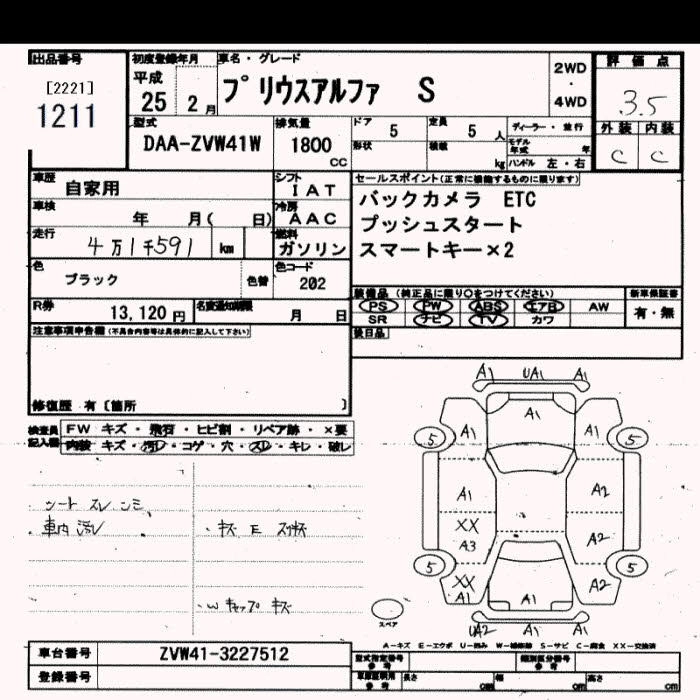 出品番号
[2221]
1211
初度登録年月
平成
25 2 月
車名・グレード
プリウスアルファ S
2WD
・
4WD
評価点
3.5
外装 内装
C C
型式
DAA-ZVW41W
排気量
1800
CC
ドア 5
形状
定員 5 人
積載 kg
ディーラー・並行
モデル年式 年
ハンドル 左・右
車歴 自家用
シフト
IAT
車検 年 月( 日)
冷房
AAC
走行 4万1千591 km
燃料
ガソリン
色 ブラック 色替
色コード
202
セールスポイント(正常に機能するものに限ります)
バックカメラ ETC
プッシュスタート
スマートキー×2
装備品 (純正品に限り○をつけてください)
PS PW ABS エアB AW
SR ナビ TV カワ
新車保証書
有・無
後日品
R券 13,120 円
名変通知期限 月 日
注意事項申告欄 (不具合内容等は具体的に記入して下さい)
修復歴 有 〔箇所 〕
検査員
記入欄
FW キズ・飛石・ヒビ割・リペア跡・×要
内装 キズ・汚レ・コゲ・穴・スレ・キレ・破レ
シート スレ シミ
・車内 汚レ
・キズ E
・Wキャップ キズ
A1 UA1 A1
A1
A1 A1
5 5
A1 A2
XX
A3 A2
5 5
XX
A1 A2
A1
UA2 A1 A1
スペア
A-キズ E-エクボ U-凹み W-補修跡 S-サビ C-腐食 XX-交換済
車台番号 ZVW41-3227512
登録番号
型式指定番号
参考
類別区分番号
参考
車庫証明用
参考
長さ cm 幅 cm 高さ cm